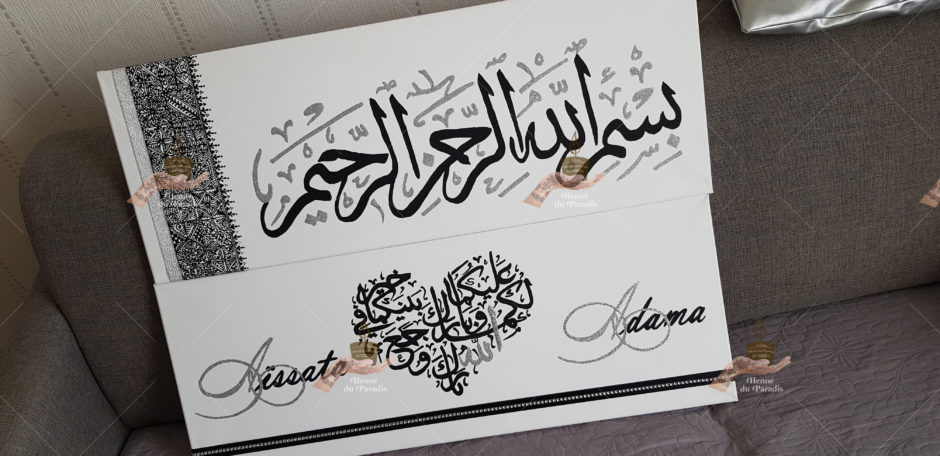 بسم الله الرحمن الرحيم
بارك الله لكما وبارك عليكما وجمع بينكما في خير
Aïssata
Adama
Henné
du Paradis
Henné
du Paradis
Henné
du Paradis
Henné
du Paradis